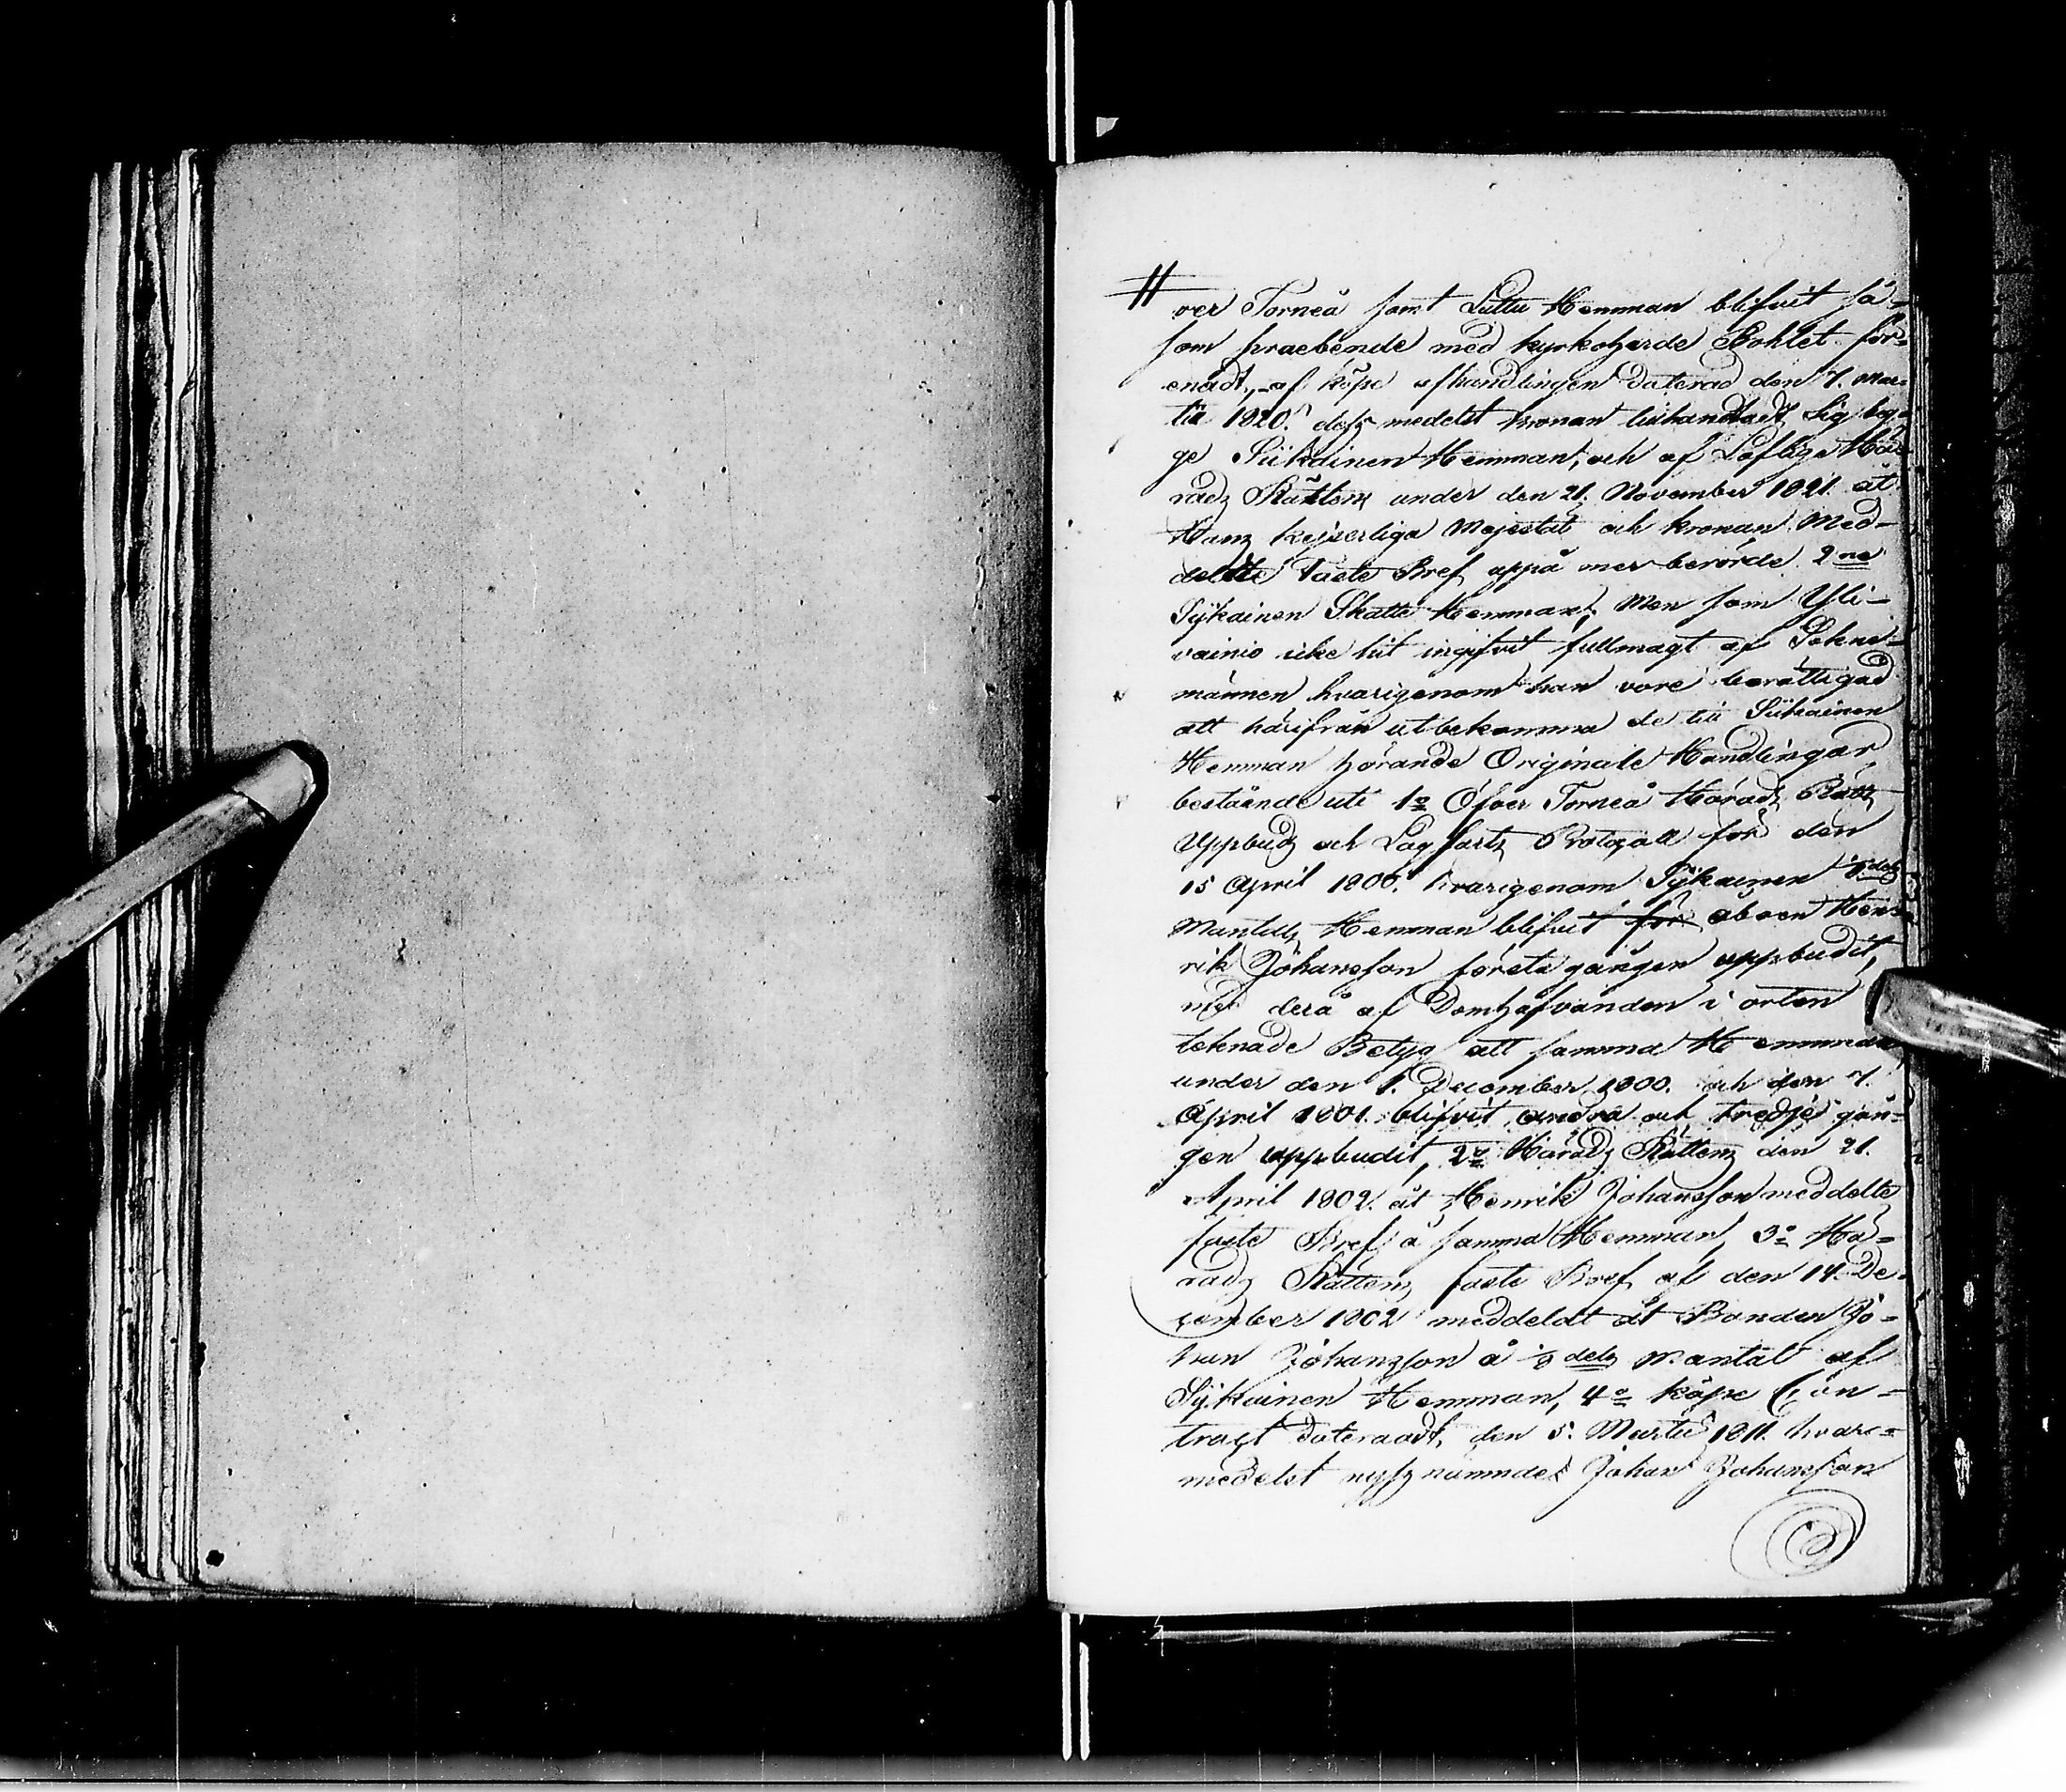 ver Torneå samt Luttu Hemman blifvit så-
som praebende med kyrkoherde Bohlet för-
enadt, af köpe afhandlingen daterad den 7. Mar-
tii 1820. dess medelst kronan tillhandladt sig begge
ge Siikainen Hemman, och af Lofliga Hä-
rads Rättens under den 21. November 1821. åt
Hans kejserliga Majestät och kronan Med-
delte Faste Bref uppå mer berörde 2ne
Sÿkainen Skatte Hemman; Men som Yli-
vainio icke hit ingifvit fullmagt af Sokne-
männen hvarigenom han vore berättigad
att härifrån utbekomma de till Siikainen
Hemman hörande Originale Handlingar,
bestående uti 1o Öfver Torneå Härads Rätts
Uppbuds och Lagfarts Protocoll för den
15 April 1800. hvarigenom Sÿkainen dels
Mantals Hemman blifvit för åboen Hen-
rik Johansson första gången uppbudit,
med derå af Domhafvanden i orten
teknade Betyg att samma Hemman
under den 1. December 1800. och den 7.
April 1801. blifvit andra och tredje gån-
gen uppbudit, 2o Härads Rättens den 21.
April 1802. åt Henrik Johansson meddelte
faste Bref å samma Hemman, 3o Hä-
rads Rättens faste Bref af den 14. De-
cember 1802 meddeldt åt Bonden Jo-
han Johansson å 1/8 dels mantal af
Sÿkainen Hemman, 4o köpe Con-
tract dateradt, den 5. Martii 1811. hvar-
medelst nyss nämndes Johan Johansson